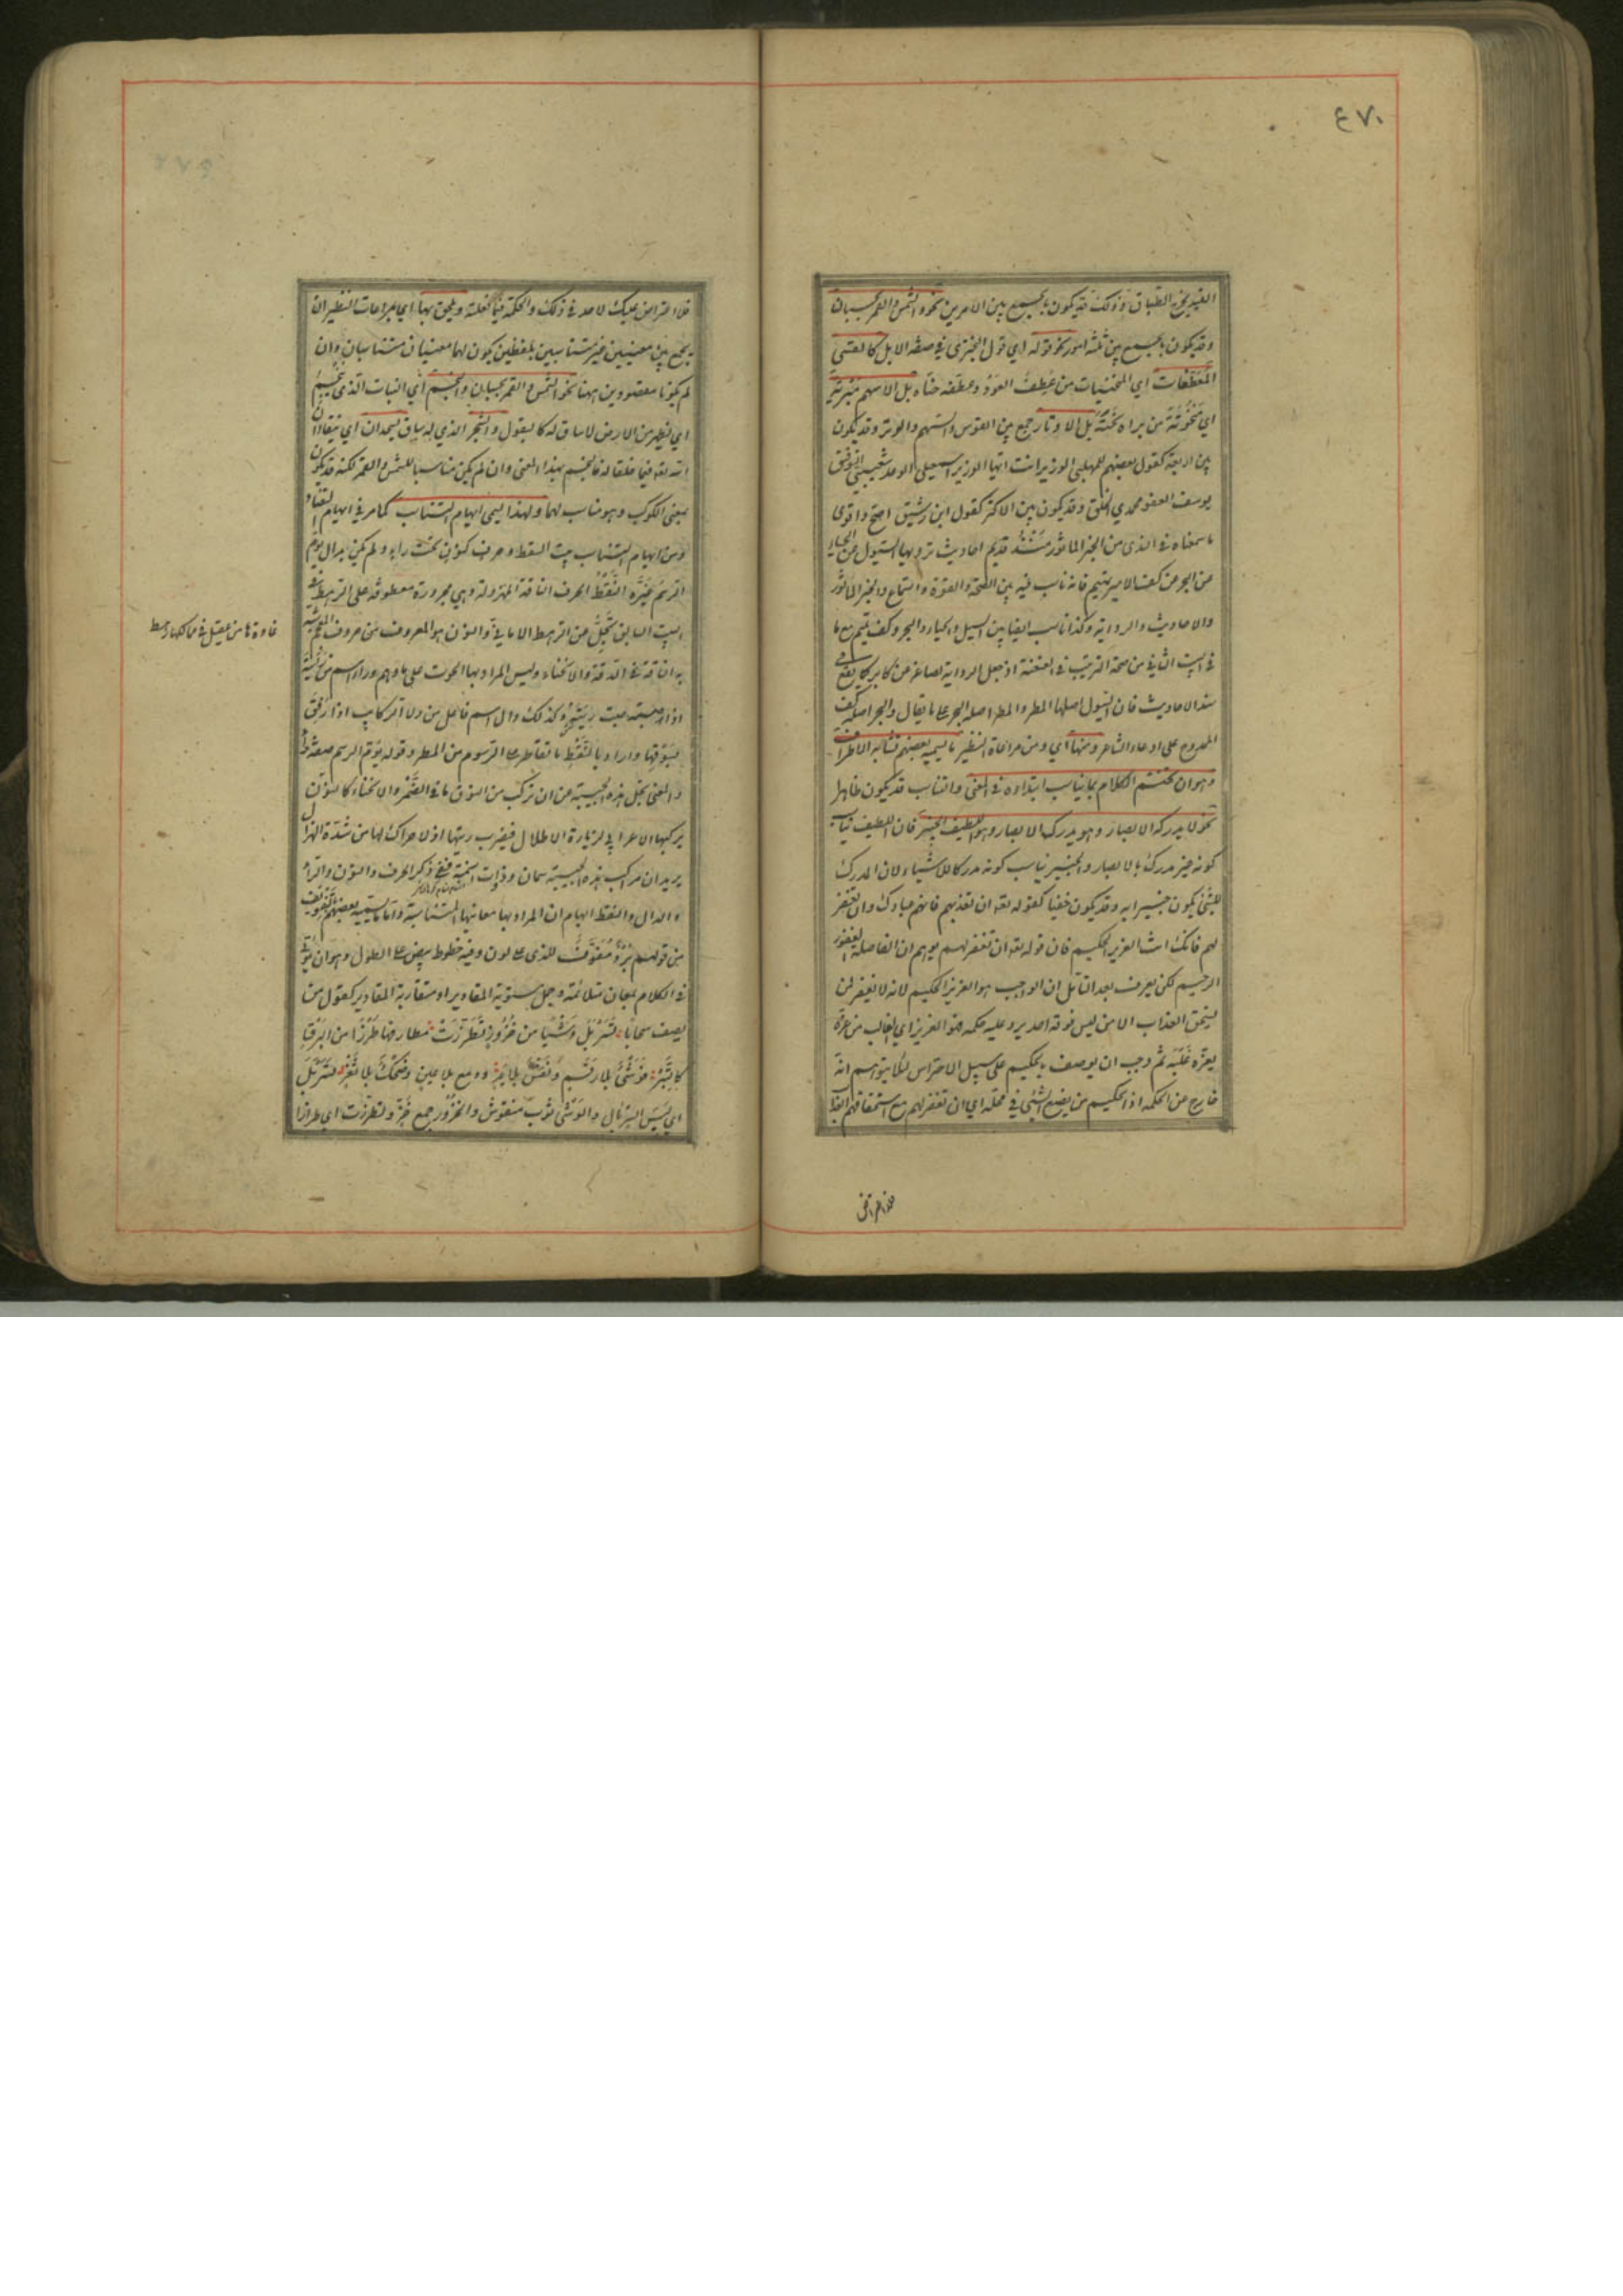 ٤٧٠
القيد يخرج الطباق وذلك قد يكون بالجمع بين الامرين نحو والشمس والقمر بحسبان
وقد يكون بالجمع بين ثلثة امور نحو قوله اي قول البحتري في صفة الابل كالقسي
المعطفات اي المنحنيات من عطف العود وعطفه حناه بل الاسهم مبرية
اي منحوتة من براه نحته بل الاوتار جمع بين القوس والسهم والوتر وقد يكون
بين اربعة كقول بعضهم للمهلبي الوزير انت ايها الوزير اسمعيلي الوعد شعيبي التوفيق
يوسف العفو محمدي الخلق وقد يكون بين الاكثر كقول ابن رشيق اصح واقوى
ما سمعناه في الندى من الخبر الماثور منذ قديم احاديث ترويها السيول عن الحيا
عن البحر عن كف الامير تميم فانه ناسب فيه بين الصحة والقوة والسماع والخبر الماثور
والاحاديث والرواية وكذا ناسب ايضا بين السيل والحيا والبحر وكف تميم مع ما
في البيت الثاني من صحة الترتيب في العنعنة اذ جعل الرواية لصاغر عن كابر كما يقع في
سند الاحاديث فان السيول اصلها المطر والمطر اصله البحر على ما يقال والبحر اصله كف
الممدوح على ادعاء الشاعر ومنها اي ومن مراعاة النظير ما يسميه بعضهم تشابه الاطراف
وهو ان يختتم الكلام بما يناسب ابتداءه في المعنى والتناسب قد يكون ظاهرا
نحو لا يدركه الابصار وهو يدرك الابصار وهو اللطيف الخبير فان اللطيف يناسب
كونه غير مدرك بالابصار والخبير يناسب كونه مدركا للاشياء لان المدرك
للشئ يكون خبيرا به وقد يكون خفيا كقوله تعه ان تعذبهم فانهم عبادك وان تغفر
لهم فانك انت العزيز الحكيم فان قوله تعه ان تغفر لهم يوهم ان الفاصلة الغفور
الرحيم لكن يعرف بعد التامل ان الواجب هو العزيز الحكيم لانه لا يغفر لمن
يستحق العذاب الا من ليس فوقه احد يرد عليه حكمه فهو العزيز اي الغالب من عزه
يعزه غلبه ثم وجب ان يوصف بالحكيم على سبيل الاحتراس لئلا يتوهم انه
خارج عن الحكمة اذ الحكيم من يضع الشئ في محله اي ان تغفر لهم مع استحقاقهم العذاب
فلا اعتراض
فلا اعتراض عليك لاحد في ذلك والحكمة فيما فعلته ويلحق بها اي بمراعات النظير ان
يجمع بين معنيين غير متناسبين بلفظين يكون لهما معنيان متناسبان وان
لم يكونا مقصودين ههنا نحو الشمس والقمر بحسبان والنجم اي النبات الذي ينجم
اي يظهر من الارض لا ساق له كالبقول والشجر الذي له ساق يسجدان اي ينقادان
لله تعه فيما خلقا له فالنجم بهذا المعنى وان لم يكن مناسبا للشمس والقمر لكنه قد يكون
بمعنى الكوكب وهو مناسب لهما ولهذا يسمى ايهام التناسب كما مر في ايهام التضاد
ومن ايهام التناسب بيت السقط وحرف كنون تحت راء ولم يكن بدال يؤم
الرسم غيره النقط الحرف الناقة المهزولة وهي مجرورة معطوفة على الرهط في
البيت السابق تجل عن الرهط الامائي والنون هو المعروف من حروف المعجم شبه
به الناقة في الدقة والانحناء وليس المراد بها الحوت على ما وهم وراء اسم فاعل من رأيته
اذا اصبت ريته وكذلك دال اسم فاعل من دلا الركايب اذا رفق
بسوقها واراد بالنقط ما تقاطر على الرسوم من المطر وقوله يؤم الرسم صفة
والمعنى تجل هذه الحبيبة عن ان تركب من النوق ما في الضمر والانحناء كالنون
يركبها الاعرابي لزيارة الاطلال فيضرب ريتها اذ لا حراك لها من شدة الهزال
يريد ان مراكب هذه الحبيبة سمان وذوات اسنمة ففي ذكر الحرف والنون والراء
والدال والنقط ايهام ان المراد بها معانيها المتناسبة واما ما يسميه بعضهم التفويف
من قولهم برد مفوف للذي على لون وفيه خطوط بيض على الطول وهو ان يؤتى
في الكلام بمعان متلائمة وجمل مستوية المقادير او متقاربة المقادير كقول من
يصف سحابا تسربل وشيا من خزوز تطرزت مطارفها طرزا من البرق
كالتبر فوشي بلا رقم ونقش بلا يد ودمع بلا عين وضحك بلا ثغر تسربل
اي لبس السربال والوشي ثوب منقوش والخزوز جمع خز وتطرزت اي طرازا